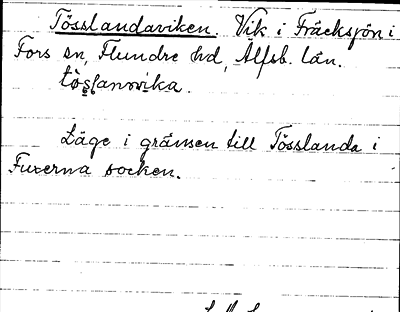 Tösslandaviken. Vik i Fräcksjön i
Fors sn, Flundre hd, Älfsb. län.
tös̱lanɷvika.
Läge i gränsen till Tösslanda i
Fuxerna socken.